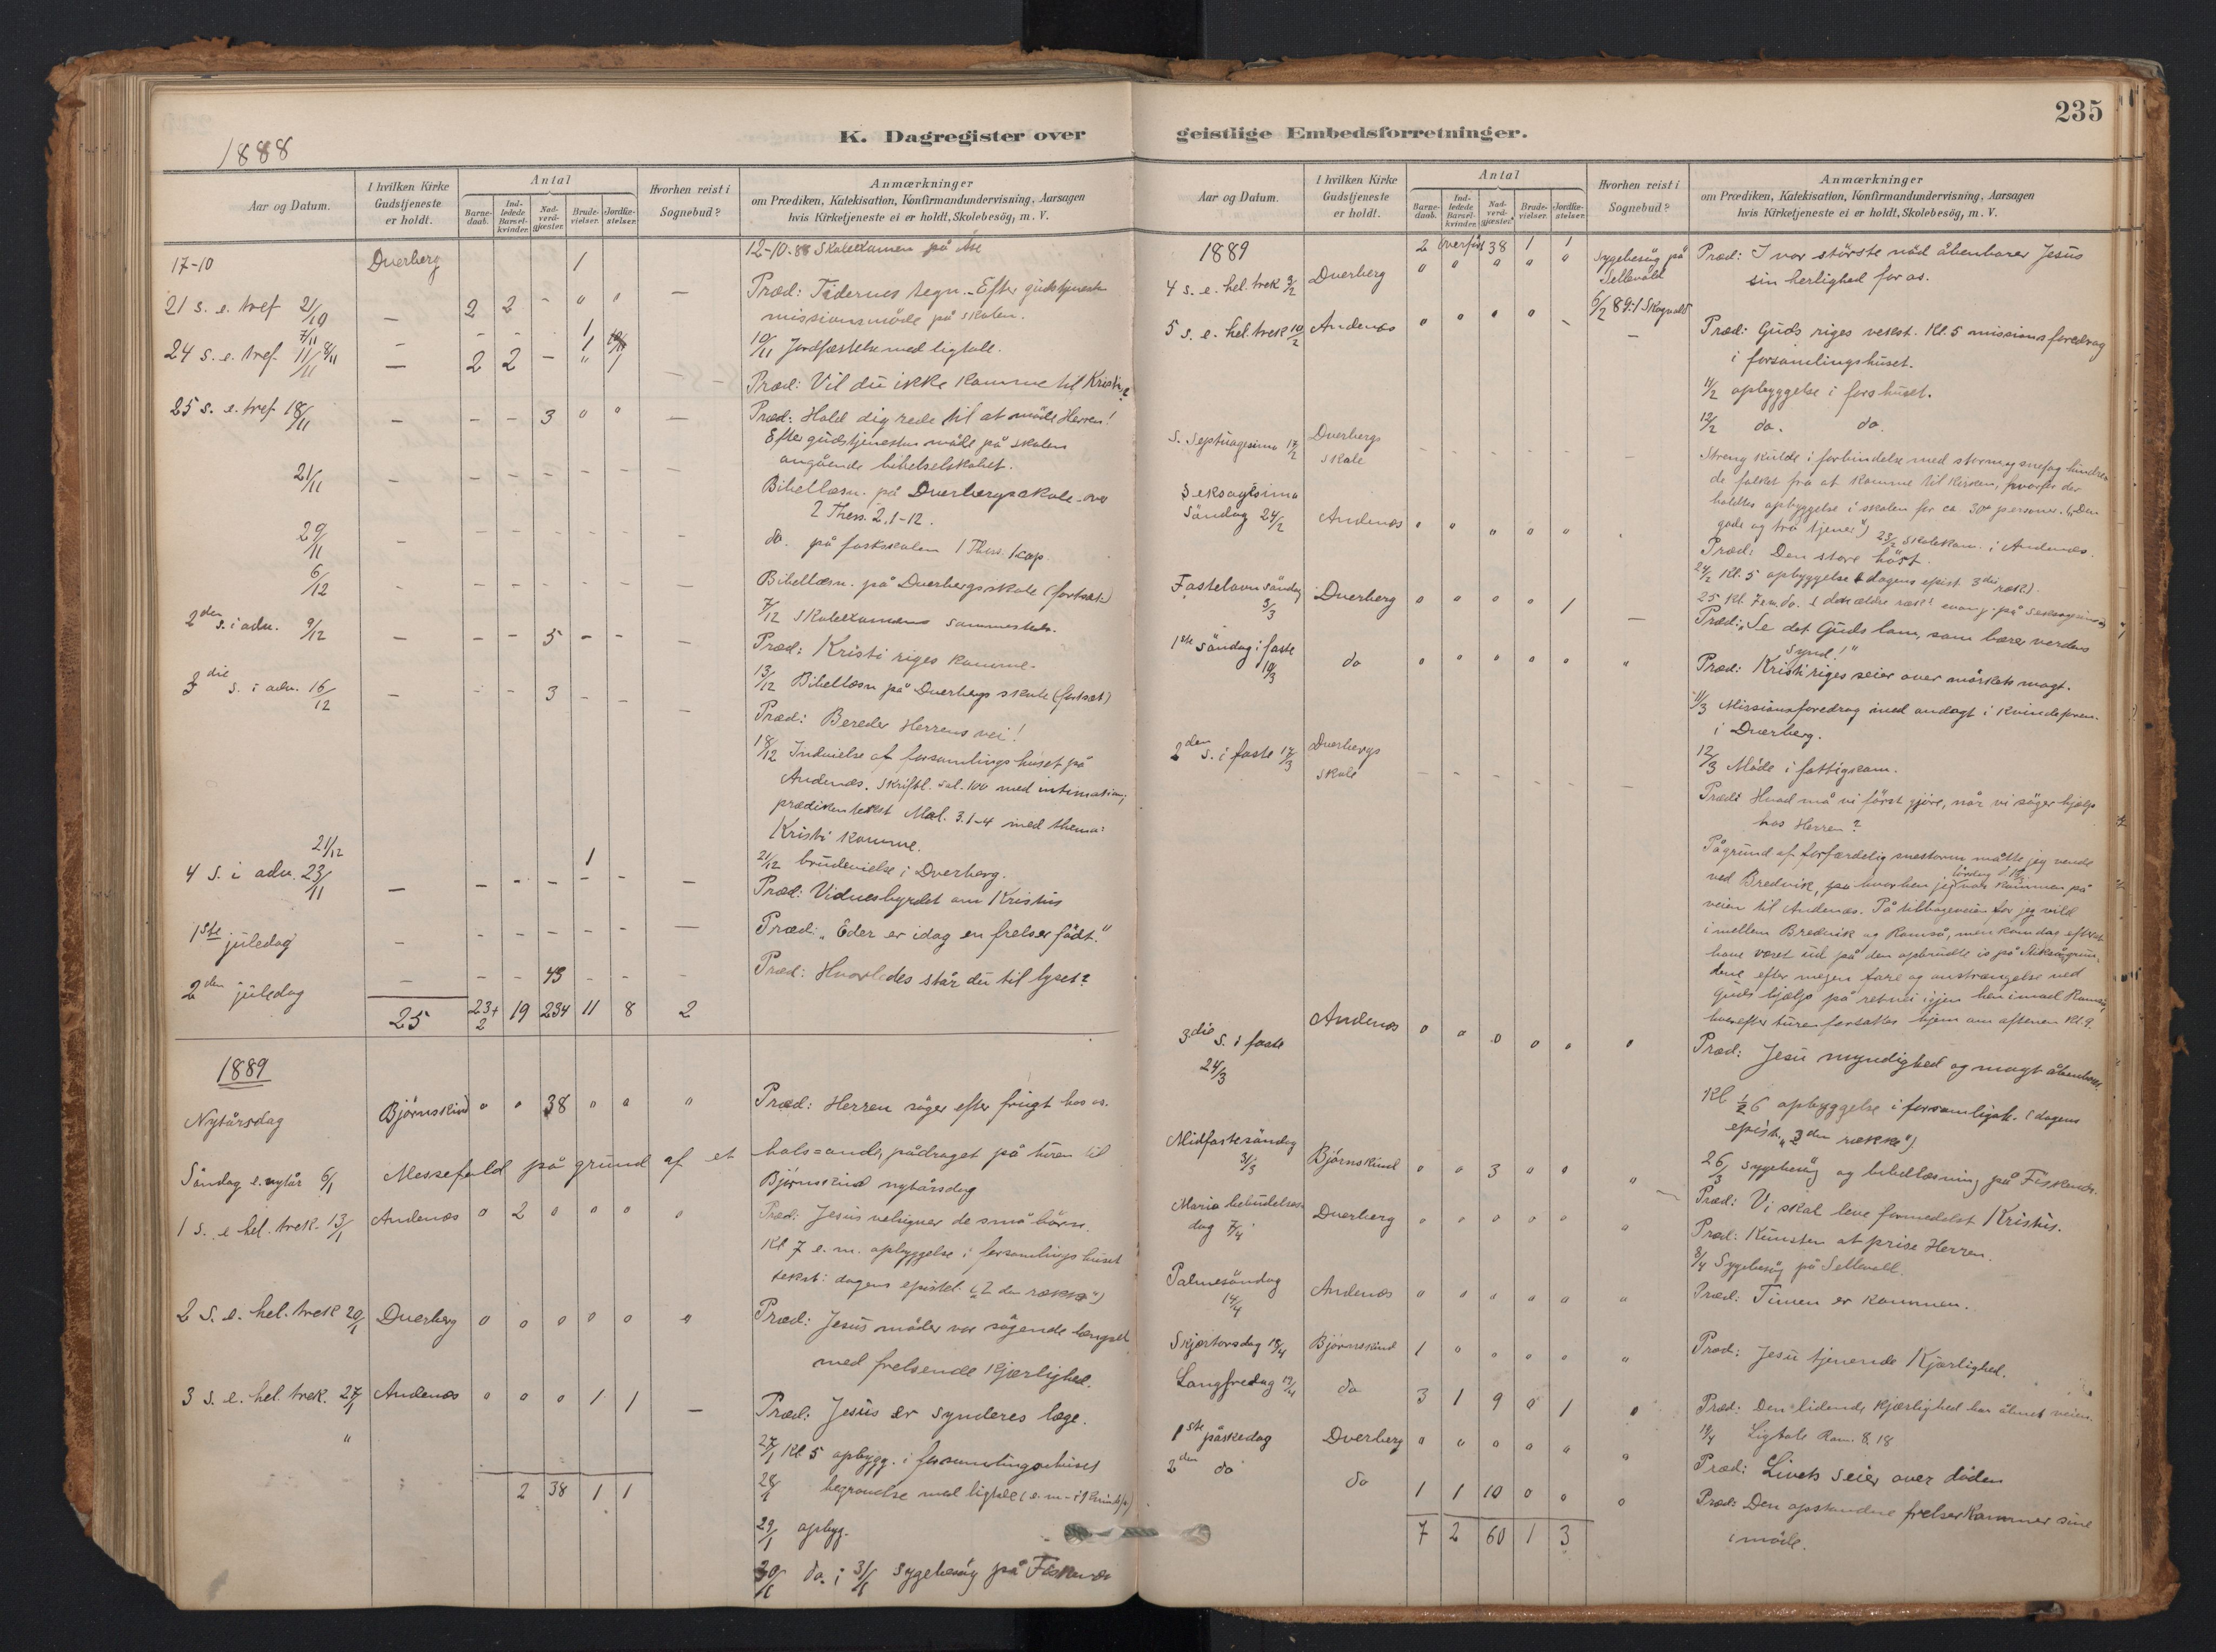 235
K. Dagregister over
1888
Aar og Datum.
I hvilken Kirke Gudstjeneste er holdt.
Antal
Barnedaab.
Indledede Barselkvinder.
Nadverdgjæster.
Brudevielser.
Jordfæstelser.
Hvorhen reist i Sognebud?
Anmærkninger
om Prædiken, Katekisation, Konfirmandundervisning, Aarsagen
hvis Kirketjeneste ei er holdt, Skolebesög, m. V.
17-10 Dverberg 1 12-10-88 Skoleexamen på Åse
21 s. e. tref 21/10 — 2 2 - " " — Præd: Tidernes tegn. - Efter gudstjenesten
missionsmöde på skolen.
7/11 — - - 1
10/11 Jordfæstelse med ligtale.
24 s. e. tref. 11/11 — 2 2 — " 1 — Præd: Vil du ikke komme til Kristus?
25 s. e. tref 18/11 — - - 3 " " — Præd: Hold dig rede til at möde Herren!
Efter gudstjenesten möde på skolen
angående bibelselskabet.
21/11 — - - - - - — Bibellæsn. på Dverbergs skole over
2 Thess. 2. 1-12.
29/11 — - - - - - — do. på fastskolen 1 Thess. 1 kap.
6/12 - - - - - - — Bibellæsn. på Dverbergs skole (fortsat)
7/12 Skoleexamen sammesteds.
2den s. i adv. 9/12 — - - 5 - - — Præd: Kristi riges komme.
13/12 Bibellæsn på Dverbergs skole (fortsat)
3die s. i adv. 16/12 — - - 3 - - — Præd: Bereder Herrens vei!
18/12 Indvielse af forsamlingshuset på
Andenæs. Skriftl. sal. 100 med intimation;
prædikentekst Mal. 3. 1-4 med thema:
Kristi komme.
21/12 1 21/12 brudevielse i Dverberg.
4 s. i adv. 23/11 — - - - - - — Præd: Vidnesbyrdet om Kristus
1ste juledag — - - - - - — Præd: "Eder er idag en frelser födt."
2den juledag — - - 43 - - - Præd: Hvorledes står du til lyset?
25 23+2 19 234 11 8 2
1889
Nytårsdag Björnskind " " 38 " " " Præd: Herren söger efter frugt hos os.
Söndag e. nytår 6/1 Messefald på grund af et hals=onde, pådraget på turen til
Björnskind nytårsdag
1 s. e. hel. trek. 13/1 Andenæs " 2 " " " " Præd: Jesus velsigner de små börn.
Kl 7 e. m. opbyggelse i forsamlingshuset
tekst: dagens epistel. (2 den række")
2 s. e. hel. trek 20/1 Dverberg " " " " " " Præd: Jesus möder vor sögende længsel
med frelsende kjærlighed.
3 s. e. hel. trek. 27/1 Andenæs " " " 1 1 — Præd: Jesus er synderes læge.
" 27/1 Kl 5 opbygg. i forsamlingshuset
28/1 begravelse med ligtale
2 38 1 1
29/1 opbyg.
30/1 do. ; 31/1 sygebesög på Fiskenes
geistlige Embedsforretninger.
Aar og Datum.
I hvilken Kirke Gudstjeneste er holdt.
Antal
Barnedaab.
Indledede Barselkvinder.
Nadverdgjæster.
Brudevielser.
Jordfæstelser.
Hvorhen reist i Sognebud?
Anmærkninger
om Prædiken, Katekisation, Konfirmandundervisning, Aarsagen
hvis Kirketjeneste ei er holdt, Skolebesög, m. V.
1889 2 overfört 38 1 1
4 s. e. hel. trek 3/2 Dverberg " " " " " Sygebesög på Sellevold Præd: I vor störste nöd åbenbarer Jesus
sin herlighed for os.
6/2 89: 1 Skogvold
5 s. e. hel. trek 10/2 Andenæs " " " " - — Præd: Guds riges vekst. Kl. 5 missionsforedrag
i forsamlingshuset.
11/2 opbyggelse i forshuset.
12/2 do. do.
S. Septuagesima 17/2 Dverbergs skole - - - - - - Streng kulde i forbindelse med storm og snefog hindrede
folket fra at komme til kirken, hvorfor der
holdtes opbyggelse i skolen for ca. 30 personer. ("Den
gode og tro tjener") 23/2 Skolekom. i Andenæs.
Seksagesima
Söndag 24/2 Andenæs " " " " " Præd: Den store höst.
24/2 Kl. 5 opbyggelse dagens epist. 3die ræk).
25 Kl. 7 e.m. do. den ældre ræk evang. på
Fastelavnsöndag 3/3 Dverberg " " " " 1 — Præd: "Se det Guds lam, som bærer verdens
synd!"
1ste söndag i faste 10/3 do " " " " " " Præd: Kristi riges seier over mörkets magt.
11/3 Missionsforedrag med andagt i kvindeforen.
i Dverberg.
12/3 Möde i fattigcom.
2den s. i faste 17/3 Dverbergs skole - - - - - Præd: Hvad må vi först gjöre, når vi söger hjælp
hos Herren?
På grund af forfærdelig snestorm måtte jeg vende
ved Bredvik, hvorhen jeg var kommen på
veien til Andenæs. På tilbageveien for jeg vild
imellem Bredvik og Ramså, men kom dog efter at
have været ud på den opbrudte is på
efter megen fare og anstrængelse ved
Guds hjælp på ret vei igjen henimod Ramså,
hvorefter turen fortsattes hjem om aftenen Kl. 9.
3die s. i faste 24/3 Andenæs " " " " " " Præd: Jesu myndighed og magt åbenbaret.
Kl 1/2 6 opbyggelse i forsamlgsh. (dagens
epist. "3den række").
26/3 sygebesög og bibellæsning på Fiskenes.
Midfastesöndag 31/3 Björnskind " " 3 " " " Præd: Vi skal leve formedelst Kristus.
Maria bebudelsesdag 7/4 Dverberg " " " " " " Præd: Kunsten at prise Herren.
8/4 Sygebesög på Sellevold.
Palmesöndag 14/4 Andenæs " " " " " " Præd: Timen er kommen.
Skjærtorsdag 18/4 Björnskind 1 " " " " " Præd: Jesu tjenende Kjærlighed.
Langfredag 19/4 do 3 1 9 " 1 " Præd: Den lidende kjærlighed har åbnet veien.
19/4 Ligtale Rom. 8, 18
1ste påskedag Dverberg " " " " " " Præd: Livets seier over döden
2den do do 1 1 10 " " " Præd: Den opstandne frelser kommer sine
i möde.
7 2 60 1 3